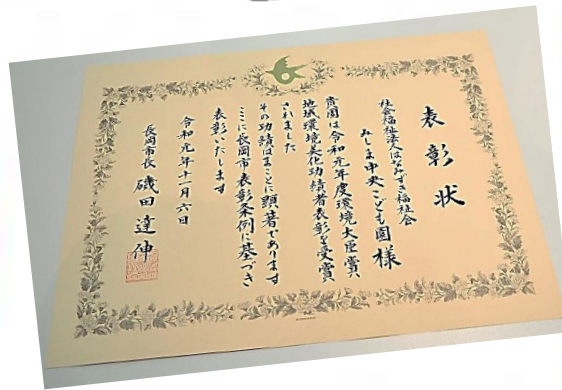 表彰状
社会福祉法人はなみずき福祉会
みしま中央こども園 様
貴園は令和元年度環境大臣賞
地域環境美化功績者表彰を受賞
されました
その功績はまことに顕著であります
ここに長岡市表彰条例に基づき
表彰いたします
令和元年十一月六日
長岡市長 磯田達伸